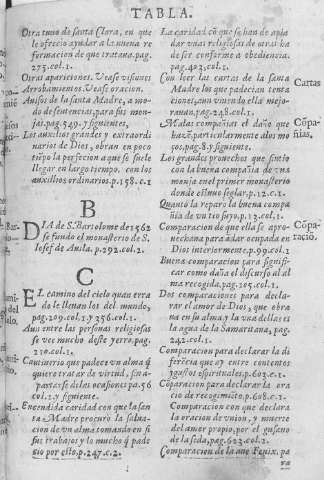 TABLA.
Otra tuuo de santa Clara, en que
le ofrecio ayudar a la nueua re
formacion de que trataua. pag.
273. col. 1.
Otras apariciones. Vease visiones
Arrobamientos. Vease oracion.
Auisos de la santa Madre, a mo-
do de sentencias, para sus mon-
jas. pag. 549. y siguientes,
Los auxilios grandes y extraordi
narios de Dios, obran en poco
tiẽpo la perfecion a que se suele
llegar en largo tiempo, con los
auxilios ordinarios. p. 158. c. 1
B
DIA de S. Bartolome de 1562
se fundo el monasterio de S.
Iosef de Auila. p. 292. col. 2.
C
EL camino del cielo quan erra
do le lleuan los del mundo,
pag. 209. col. 1. y 256. col. 1.
Aun entre las personas religiosas
se vee mucho deste yerro. pag.
210. col. 1.
Cautiuerio que padece vn alma q̃
quiere tratar de virtud, si no a-
parta se de las ocasiones pa. 56
col. 2. y siguiente.
Encendida caridad con que la san
ta Madre procuro la saluacion
de vn alma tomando en si
sus trabajos y lo mucho q̃ pade
sio por ello. p. 247. c. 2.
La caridad cõ que se han de apia
dar vnas religiosas de otras ha
de ser conforme a obediencia.
pag. 402. col. 1.
Con leer las cartas de la santa
Madre los que padecian tenta
ciones, aun viniendo ella mejo-
rauan. pag. 248. col. 1.
Cartas
Malas compañias el daño que
hazẽ, particularmente a los mo
ços, pag. 8. y siguiente.
Cõpa-
ñias.
Los grandes prouechos que sintio
con la buena compañia de vna
monja en el primer monasterio
donde estuuo seglar. p. 12. c. 1.
Quanto la reparo la buena compa
ñia de vn tio suyo. p. 12. col. 1.
Comparacion de que ella se apro-
uechaua para adar ocupada en
Dios interiormente. p. 99. col. 1
Cõpa-
raciõ.
Buena comparacion para signifi-
car como daña el discurso al al
ma recogida. pag. 205. col. 1.
Dos comparaciones para decla-
rar el amor de Dios, que obra
en su alma y la vna dellas es
la agua de la Samaritana, pag.
242. col. 1.
Comparacion para declarar la di
ferẽcia que ay entre contentos
y gustos espirituales. p. 603. c. 1.
Cõparacion para declarar la ora
cion de recogimiẽto. p. 608. c. 1.
Comparacion con que declara
la oracion de union, y muerte
del amor propio, por el gusano
de la seda, pag. 623. col. 1.
Comparacion de la aue Fenix. pa
ra